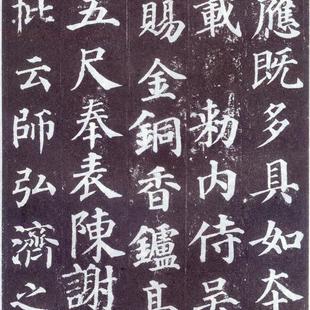 應既多具如夲
載 勅內侍吳
賜金銅香鑪高
五尺奉表陳謝
批云師弘濟之